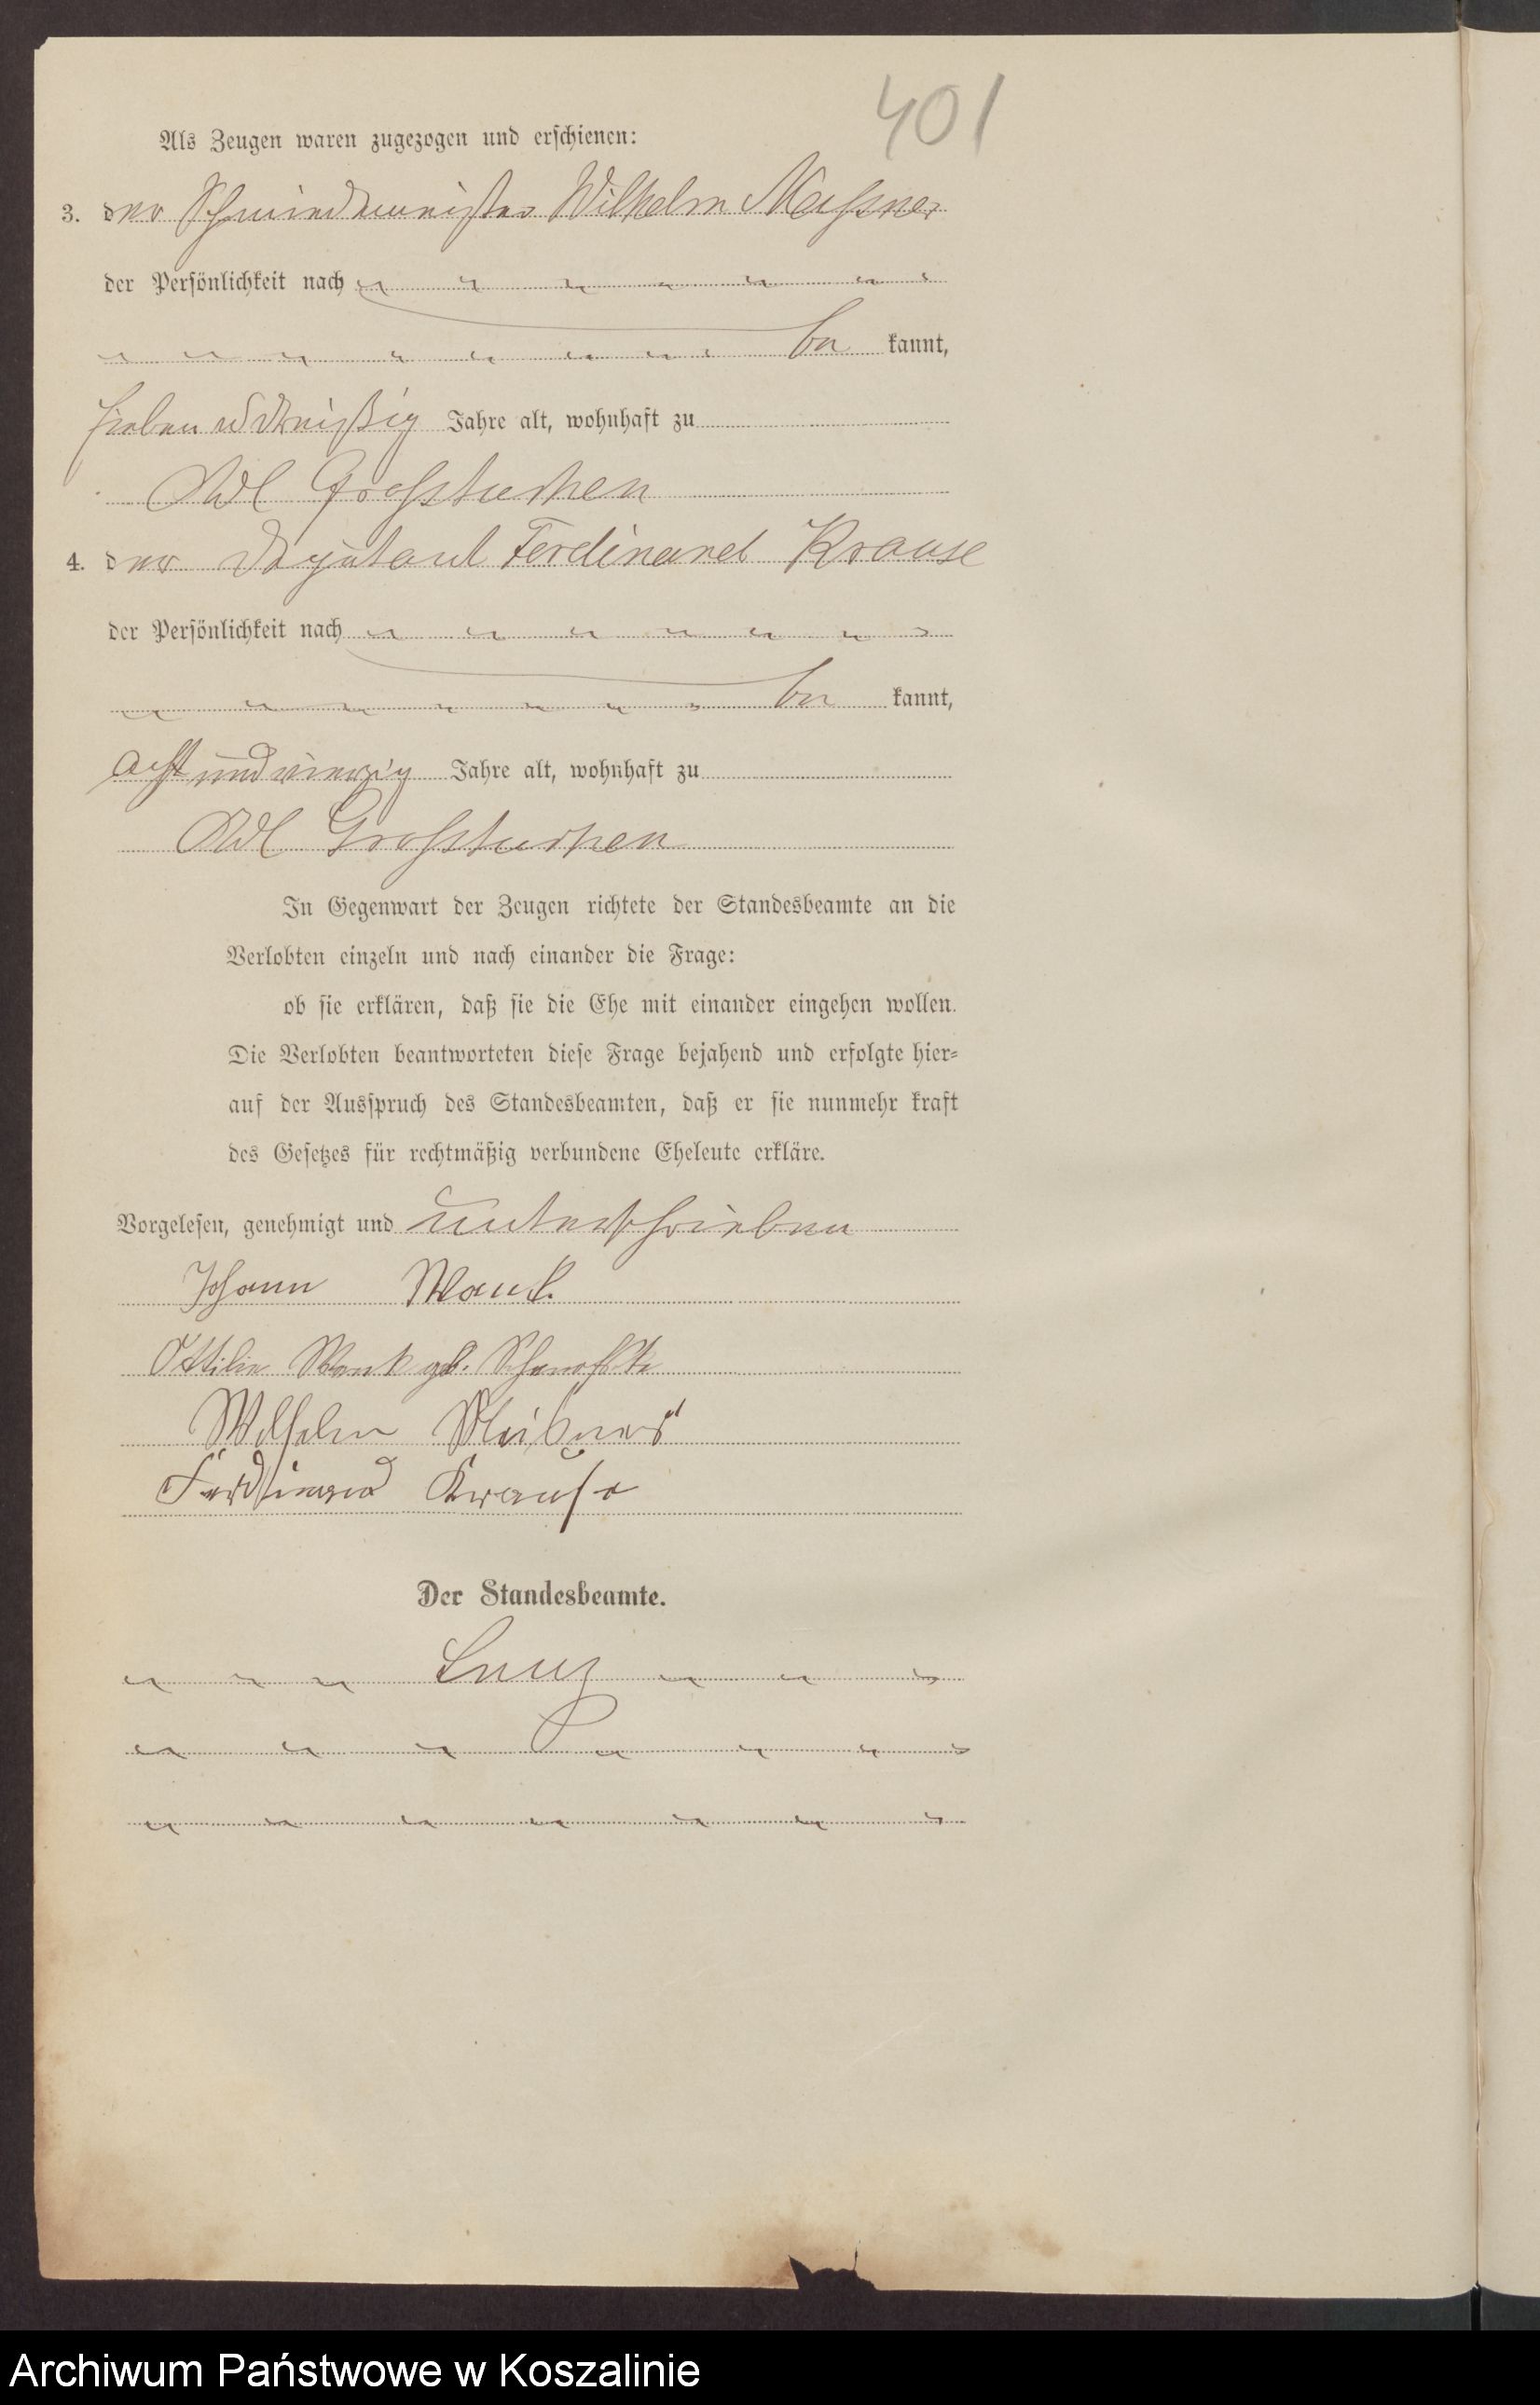 401
Als Zeugen waren zugezogen und erschienen:
3. der Schmiedemeister Wilhelm Meißner
der Persönlichkeit nach
be kannt,
sieben u dreißig Jahre alt, wohnhaft zu
Adl Großtuchen
4. der Deputant Ferdinand Krause
der Persönlichkeit nach
be kannt,
acht und vierzig Jahre alt, wohnhaft zu
Adl Großtuchen
In Gegenwart der Zeugen richtete der Standesbeamte an die
Verlobten einzeln und nach einander die Frage:
ob sie erklären, daß sie die Ehe mit einander eingehen wollen.
Die Verlobten beantworteten diese Frage bejahend und erfolgte hier-
auf der Ausspruch des Standesbeamten, daß er sie nunmehr kraft
des Gesetzes für rechtmäßig verbundene Eheleute erkläre.
Vorgelesen, genehmigt und unterschrieben
Johann Mank.
Ottilie Mank geb.
Wilhelm Meißner
Ferdinand Krause
Der Standesbeamte.
Archiwum Państwowe w Koszalinie